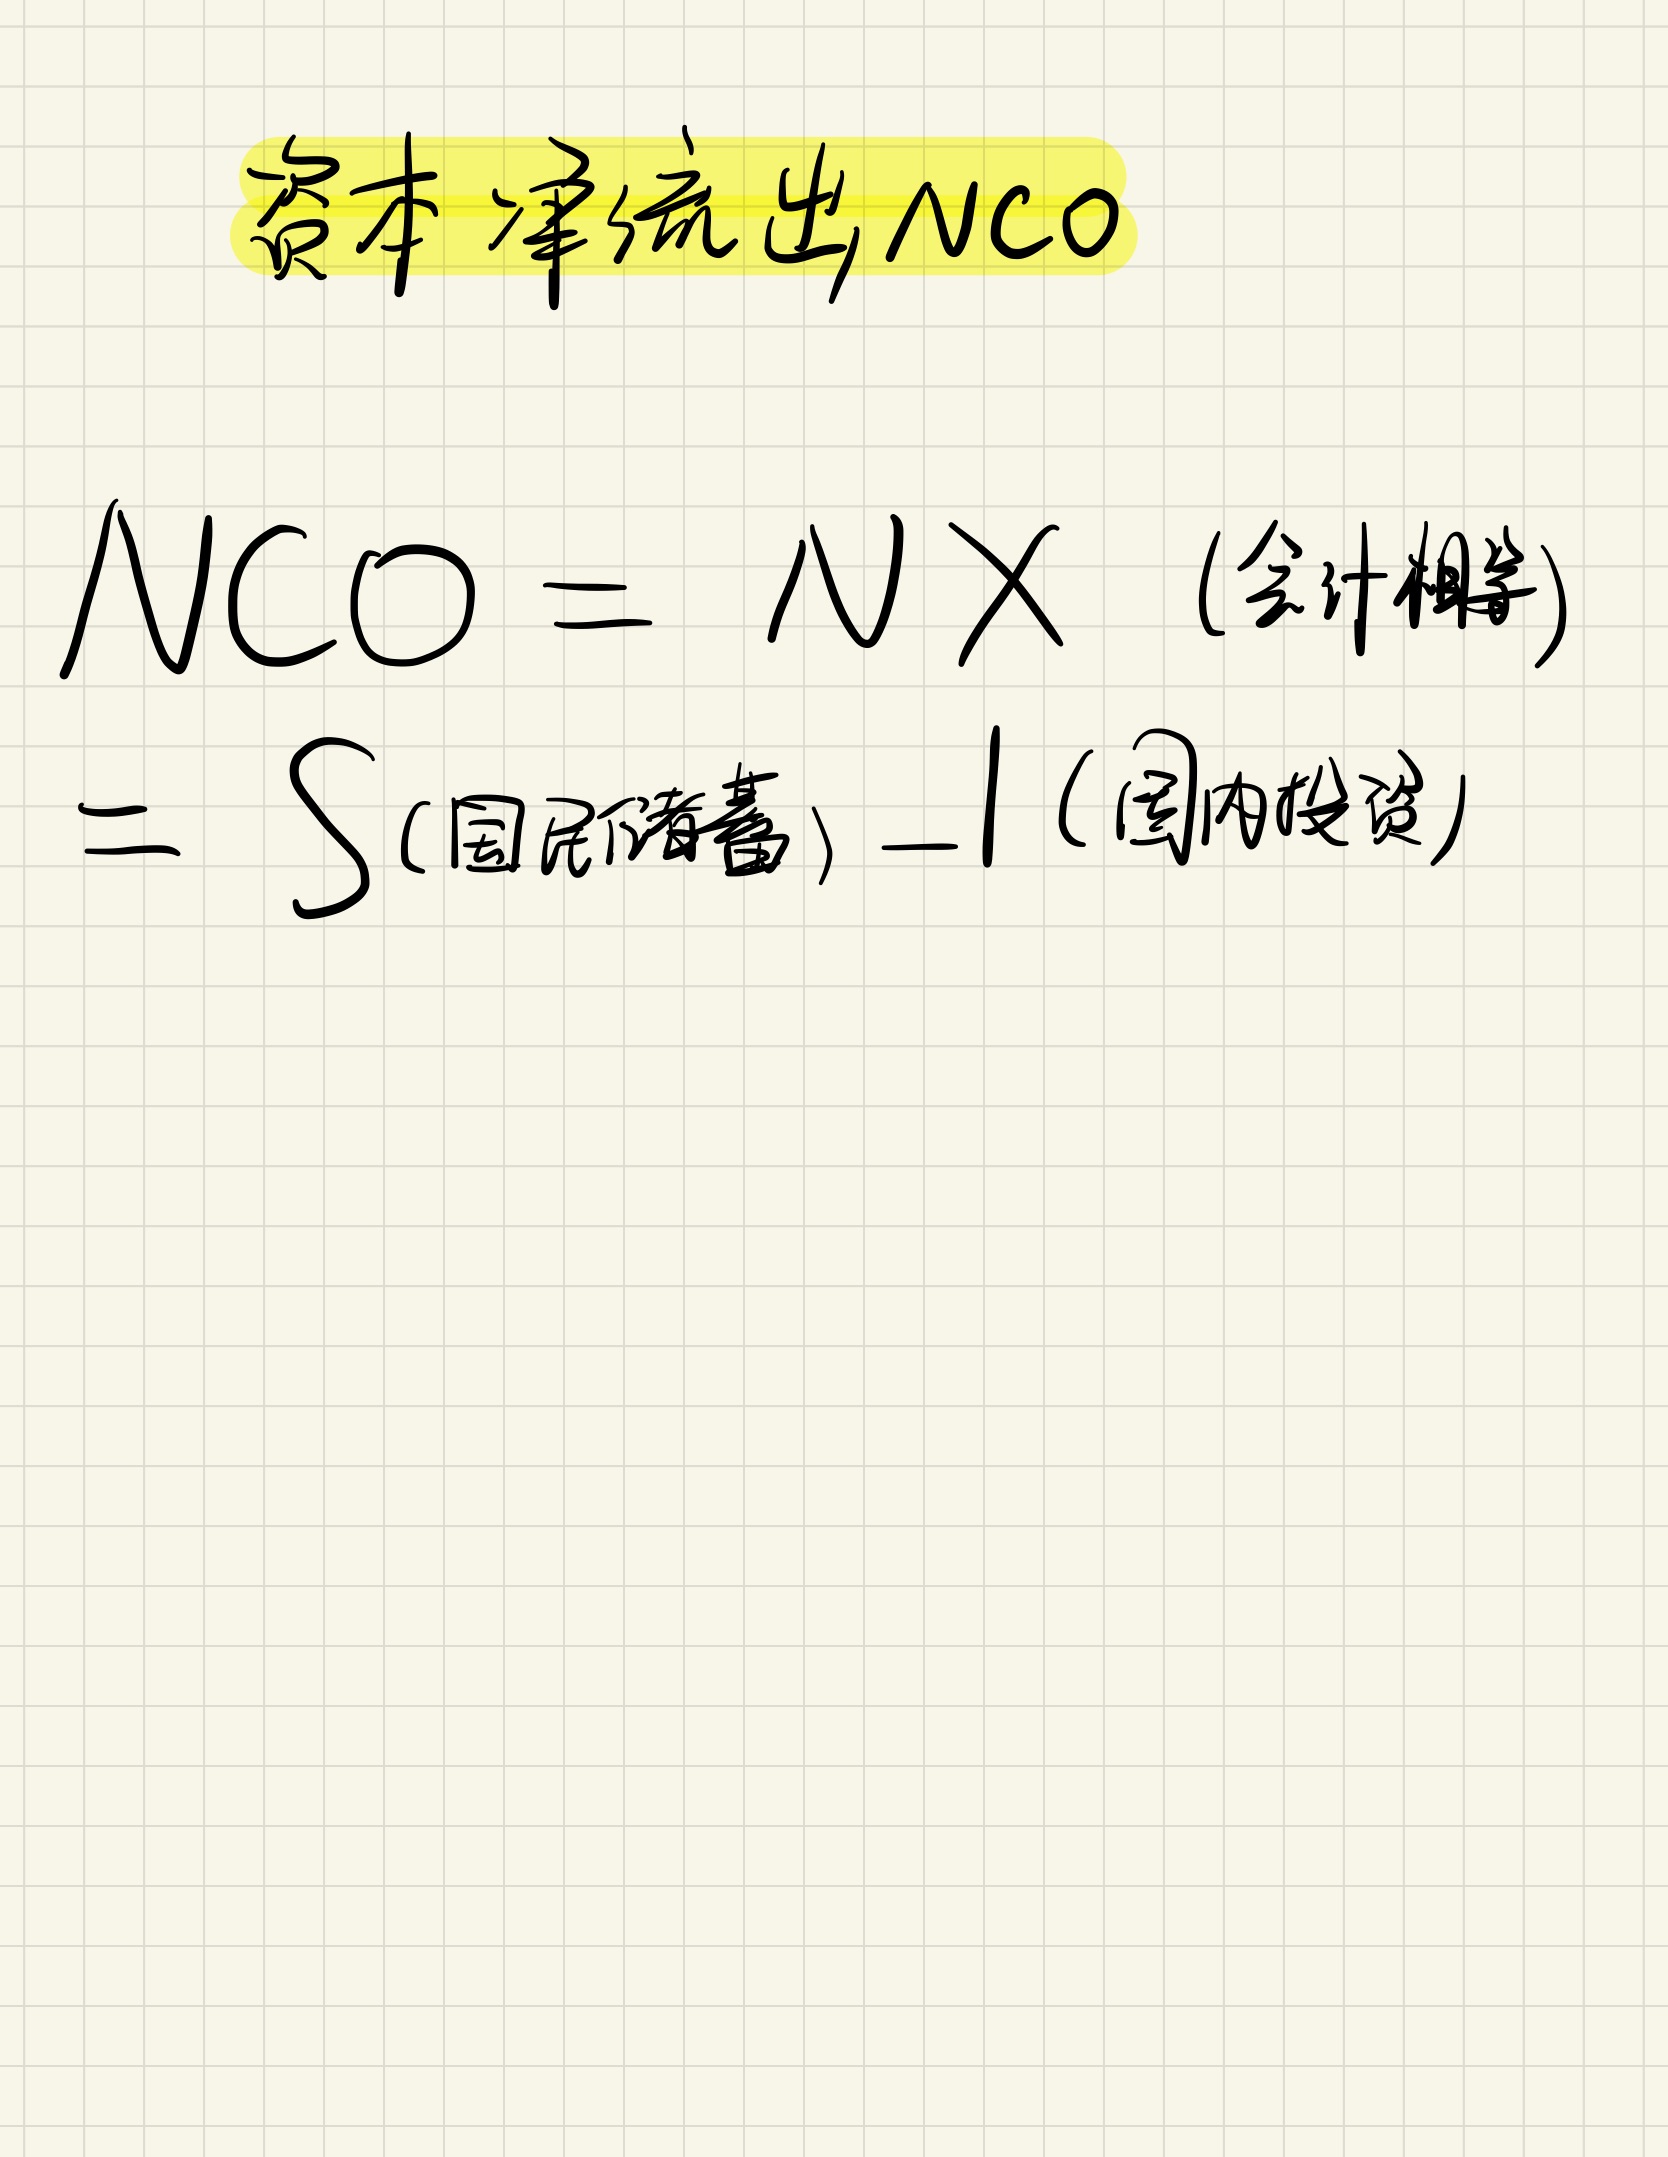 资本净流出NCO
NCO = NX (会计相等)
= S(国民储蓄) - I (国内投资)